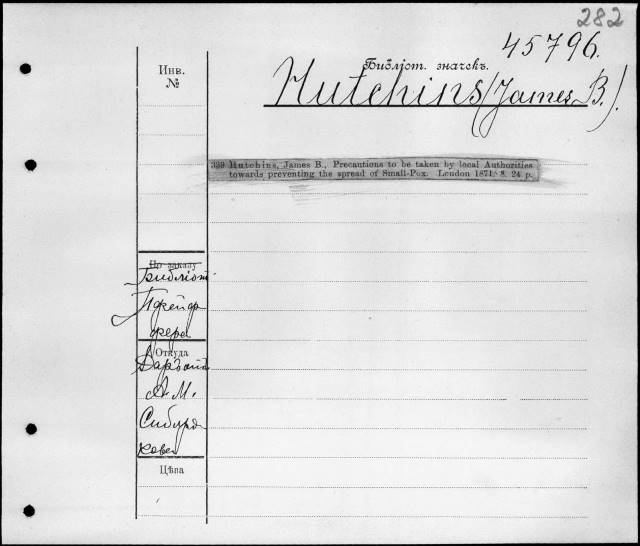 282
45796.
Инв.
№
Библіот. значекъ.
Hutchins (James B.).
339 Hutchins, James B., Precautions to be taken by local Authorities
towards preventing the spread of Small-Pox. London 1871. 8. 24 p.
По заказу
Библіот.
Пфейф
фера
Откуда
Даръ отъ
А. М.
Сибиря
кова
Цѣна